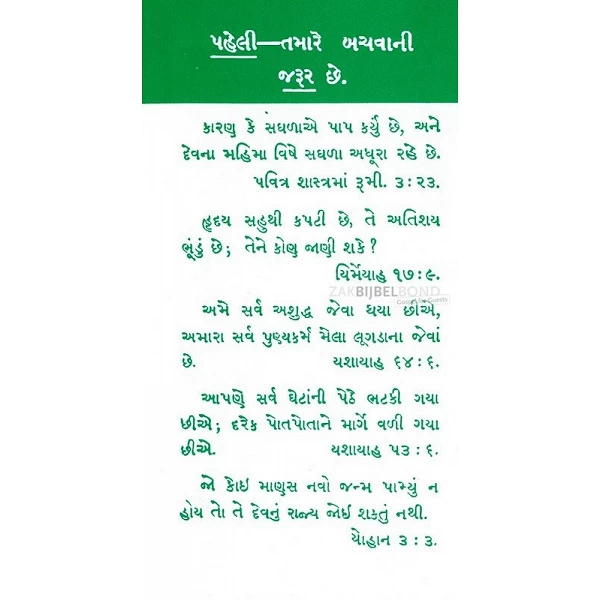 પહેલી—તમારે બચવાની
જરૂર છે.
કારણ કે સઘળાએ પાપ કર્યું છે, અને
દેવના મહિમા વિષે સઘળા અધૂરા રહે છે.
પવિત્ર શાસ્ત્રમાં રૂમી. ૩ : ૨૩.
હૃદય સહુથી કપટી છે, તે અતિશય
ભૂંડું છે; તેને કોણ જાણી શકે?
યિર્મેયાહ ૧૭ : ૯.
ZAKBIJBELBOND
Gospel for Guests
અમે સર્વ અશુદ્ધ જેવા થયા છીએ,
અમારા સર્વ પુણ્યકર્મ મેલા લૂગડાના જેવાં
છે. યશાયાહ ૬૪ : ૬.
આપણે સર્વ ઘેટાંની પેઠે ભટકી ગયા
છીએ; દરેક પોતપોતાને માર્ગે વળી ગયા
છીએ. યશાયાહ ૫૩ : ૬.
જો કોઇ માણસ નવો જન્મ પામ્યું ન
હોય તો તે દેવનું રાજ્ય જોઇ શકતું નથી.
યોહાન ૩ : ૩.